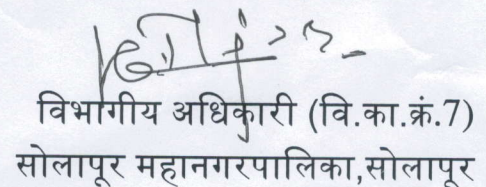 विभागीय अधिकारी (वि.का.क्रं.7)
सोलापूर महानगरपालिका,सोलापूर